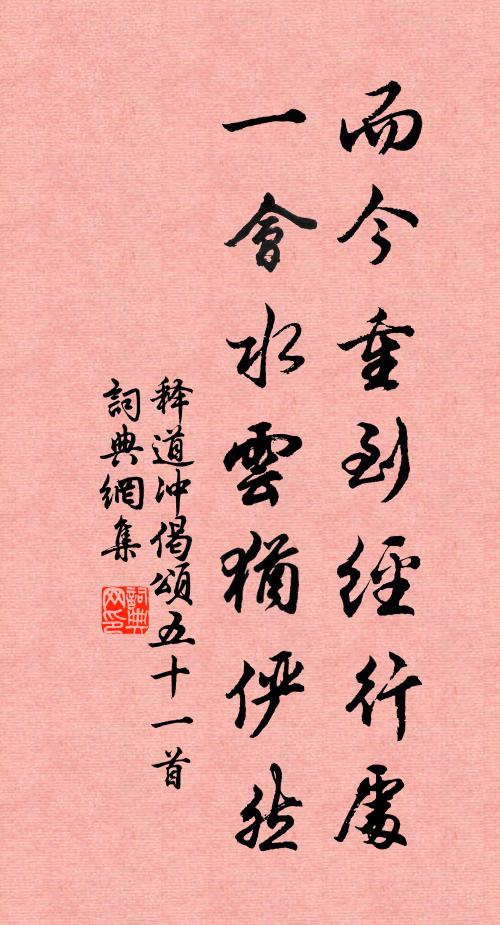 而今重到經行處
一會水雲猶俨然
释道沖偈頌五十一首
詞典網集
詞典网印